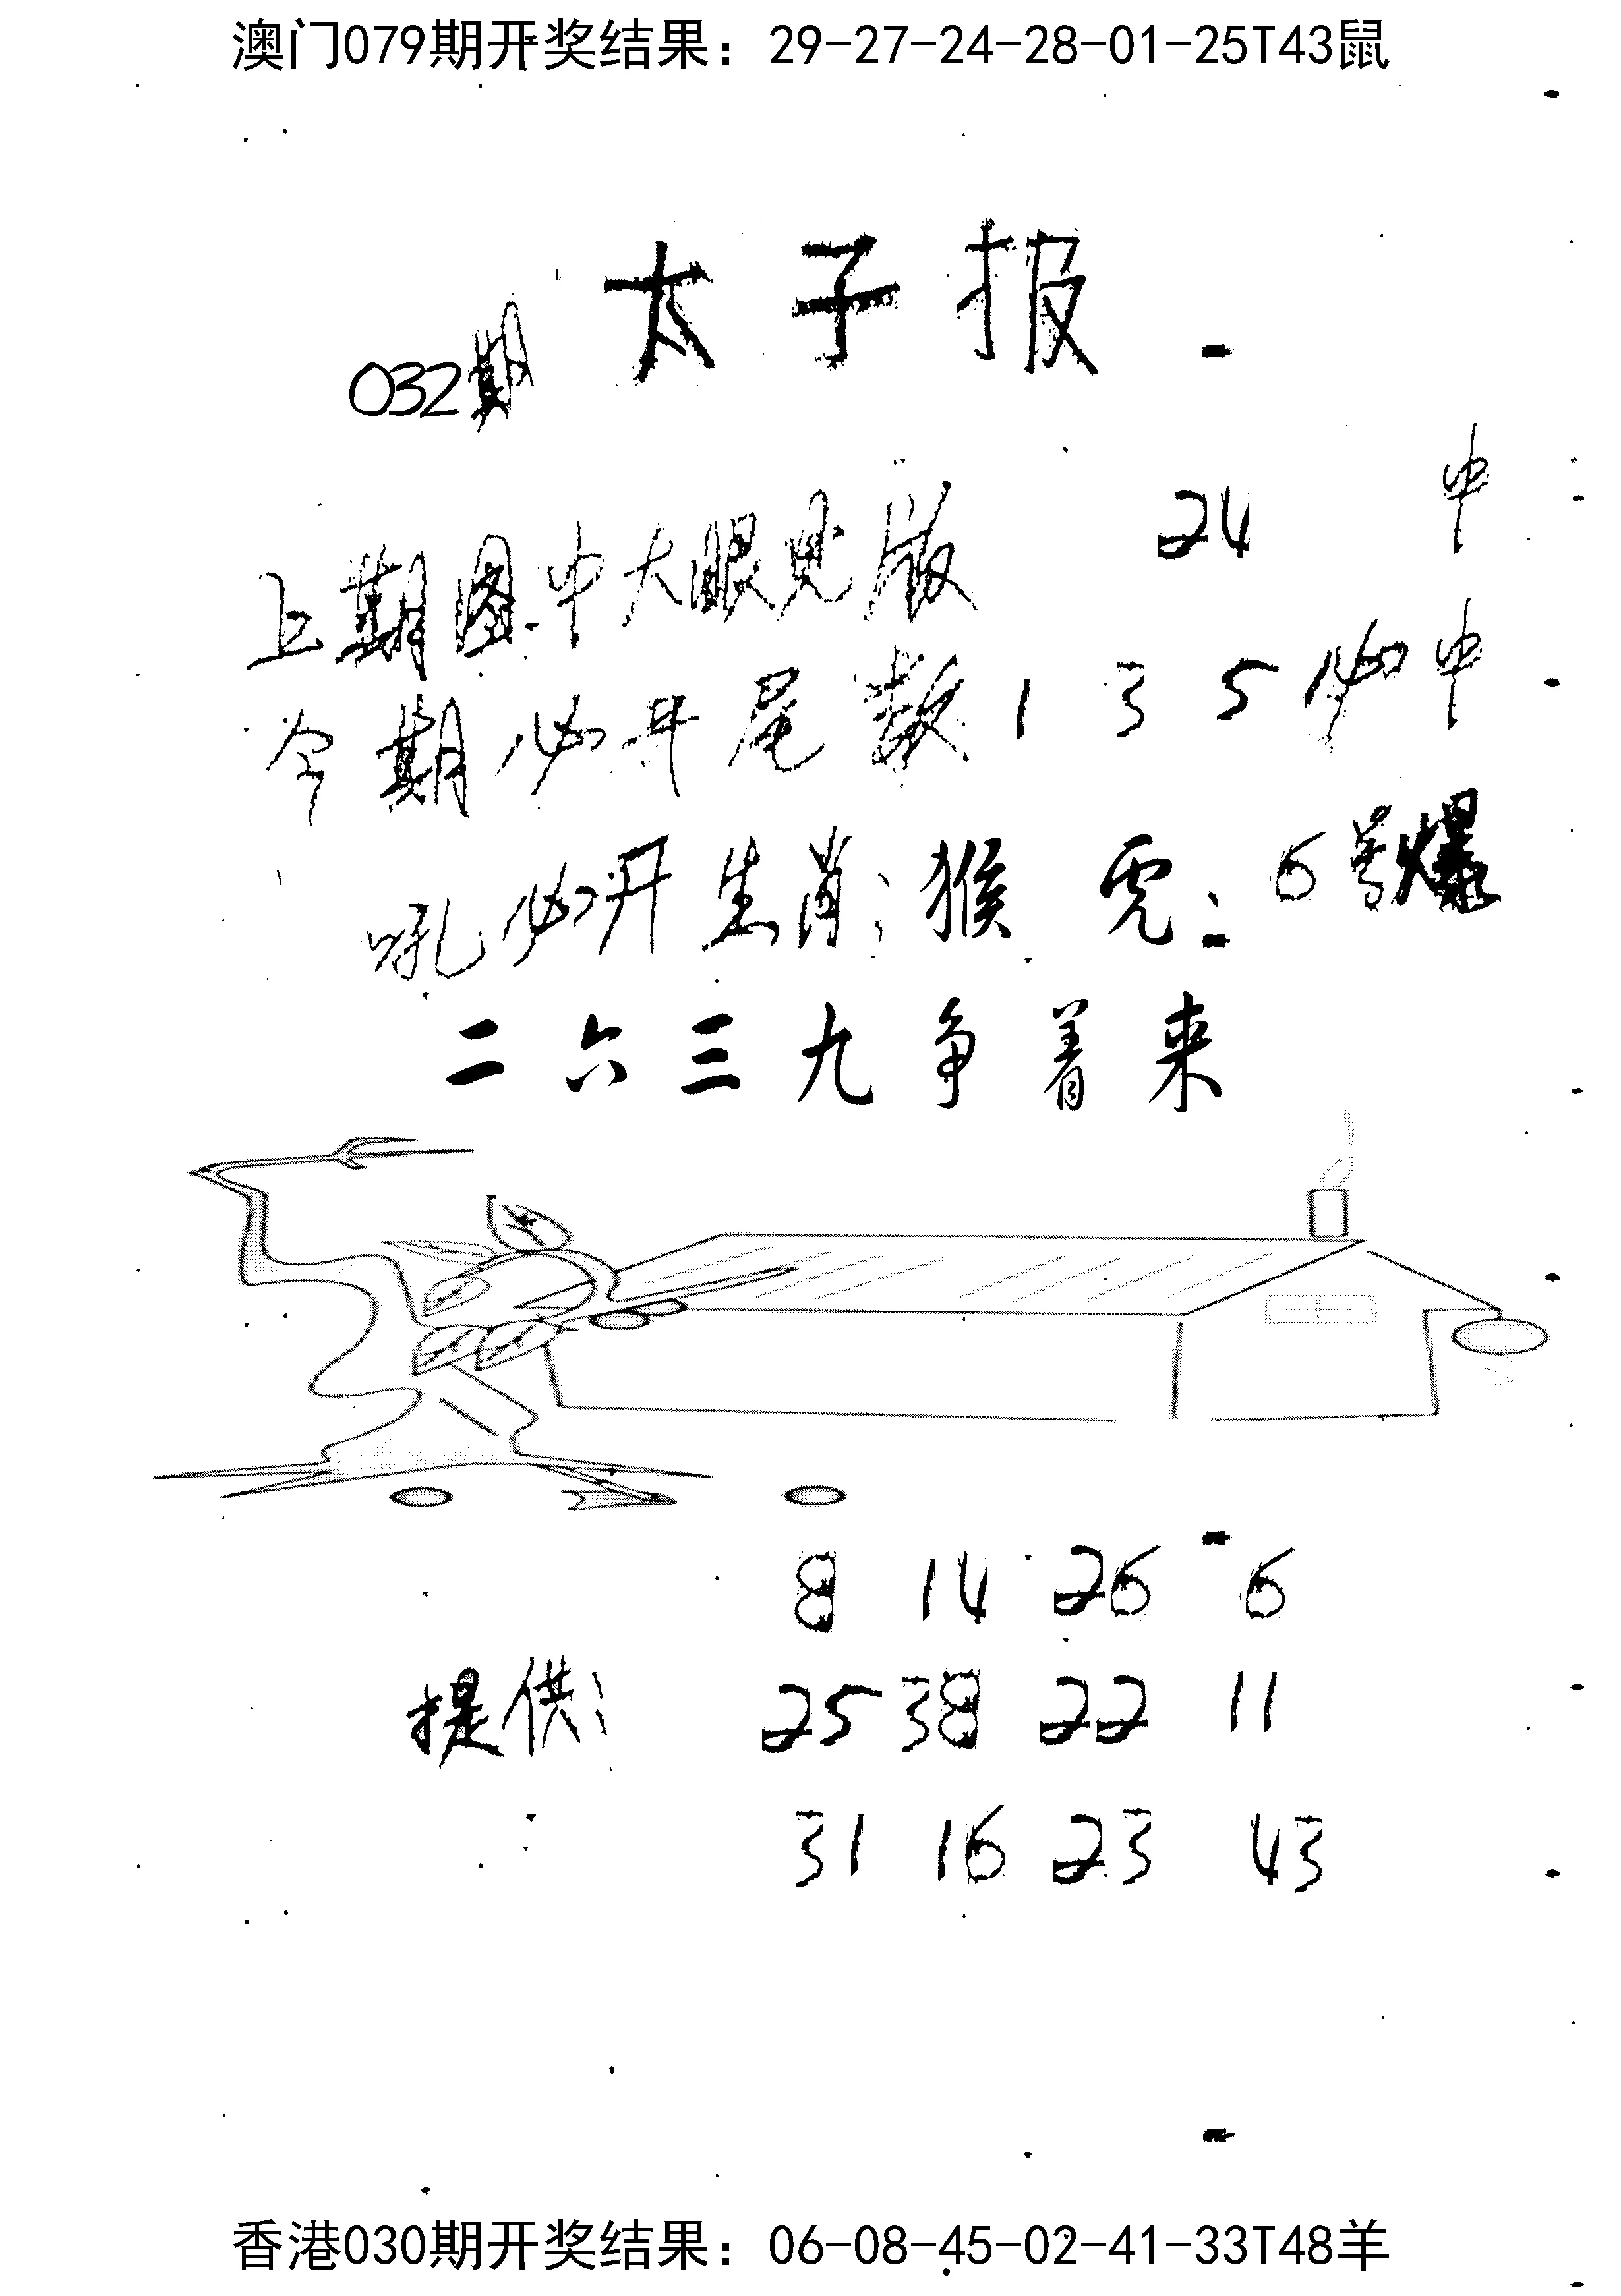 澳门079期开奖结果：29-27-24-28-01-25T43鼠
太子报
032期
上期图中大眼见版 24 中
今期必开尾数 1 3 5 必中
吼必开生肖：猴 虎： 6号爆
二六三九争着来
8 14 26 6
提供： 25 38 22 11
31 16 23 43
香港030期开奖结果：06-08-45-02-41-33T48羊